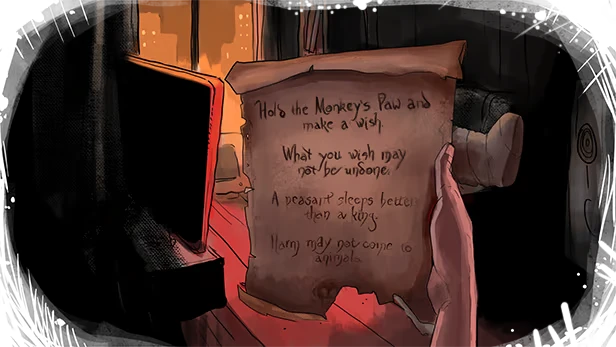 Hold the Monkey's Paw and
make a wish.
What you wish may
not be undone.
A peasant sleeps better
than a king.
Harm may not come to
animals.